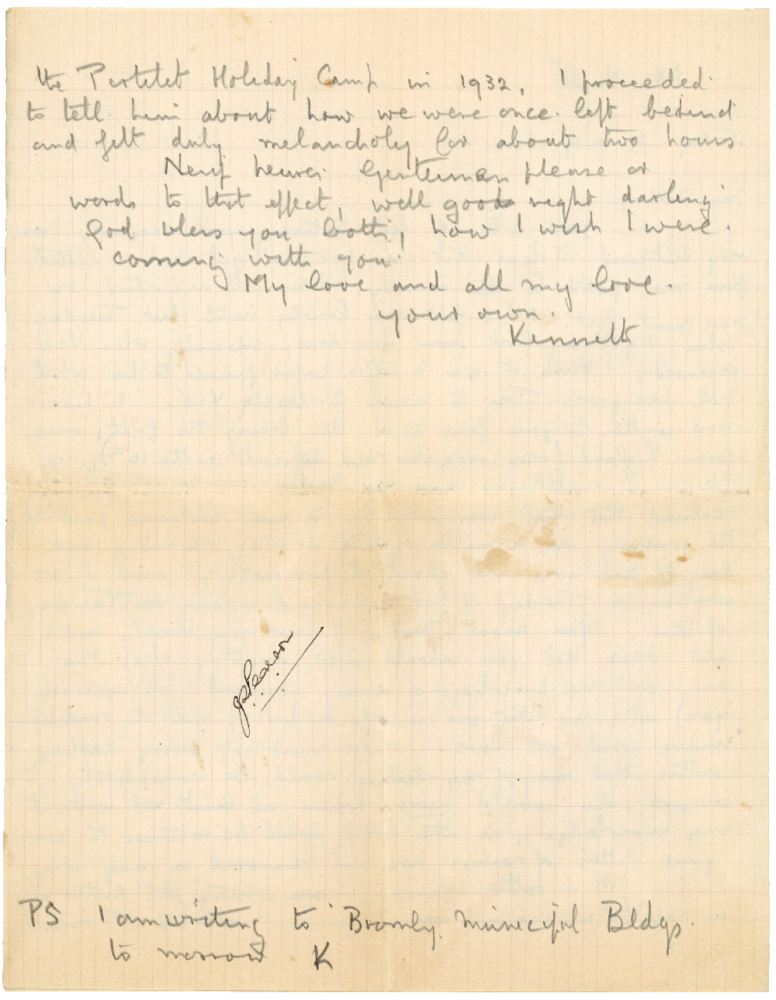 the Portelet Holiday Camp in 1932, I proceeded
to tell him about how we were once left behind
and felt duly melancholy for about two hours.
Neuf heures Gentlemen please or
words to that effect, well good night darling
God bless you both, how I wish I were
coming with you.
My love and all my love.
your own.
Kenneth
J Pearson
PS I am writing to Bromly Municipal Bldgs.
to morrow K